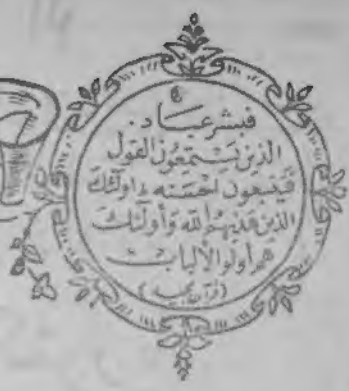 فبشر عباد.
الذين يستمعون القول
فيتبعون احسنه اولئك
الذين هديهم الله وأولئك
هم أولو الألباب
(قرآن مجيد)